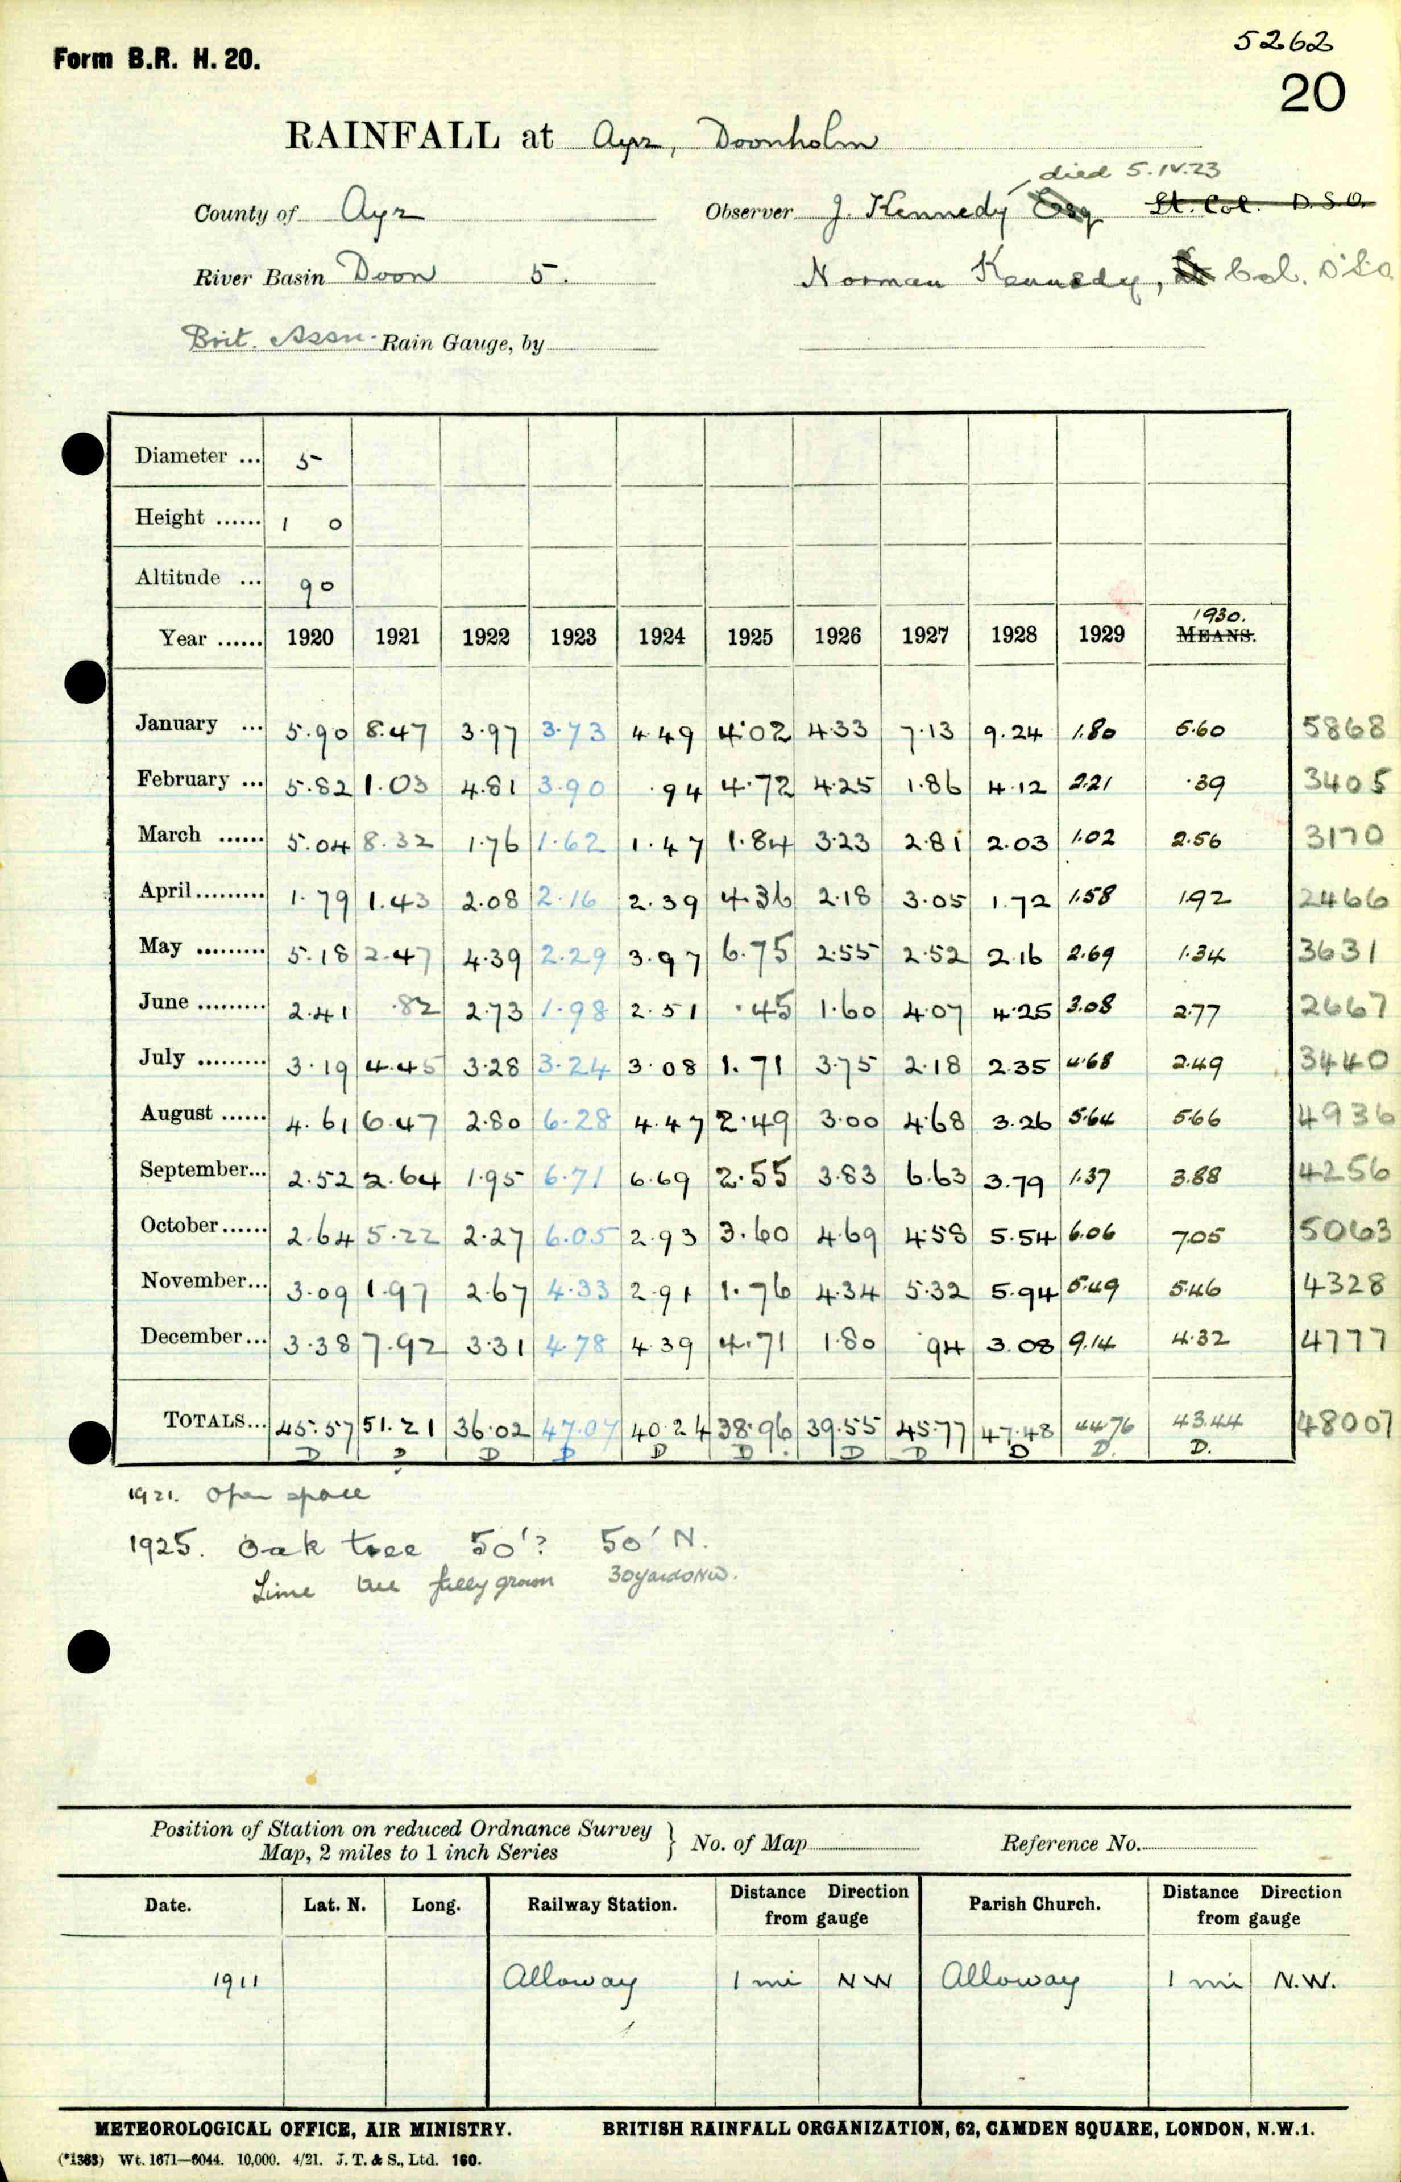 5262
Form B.R. H. 20.
20
RAINFALL at Ayr, Doonholm
died 5.IV.23
County of Ayr Observer J. Kennedy Esq Lt. Col. D.S.O.
River Basin Doon 5. Norman Kennedy, Col. D.S.O.
Brit. Assn. Rain Gauge, by
Diameter ... 5
Height ...... 1 0
Altitude ... 90
1930.
Year ...... 1920 1921 1922 1923 1924 1925 1926 1927 1928 1929 MEANS.
January ... 5.90 8.47 3.97 3.73 4.49 4.02 4.33 7.13 9.24 1.80 5.60 5868
February ... 5.82 1.03 4.81 3.90 .94 4.72 4.25 1.86 4.12 2.21 .39 3405
March ...... 5.04 8.32 1.76 1.62 1.47 1.84 3.23 2.81 2.03 1.02 2.56 3170
April......... 1.79 1.43 2.08 2.16 2.39 4.36 2.18 3.05 1.72 1.58 1.92 2466
May ......... 5.18 2.47 4.39 2.29 3.97 6.75 2.55 2.52 2.16 2.69 1.34 3631
June ......... 2.41 .82 2.73 1.98 2.51 .45 1.60 4.07 4.25 3.08 2.77 2667
July ......... 3.19 4.45 3.28 3.24 3.08 1.71 3.75 2.18 2.35 4.68 2.49 3440
August ...... 4.61 6.47 2.80 6.28 4.47 2.49 3.00 4.68 3.26 5.64 5.66 4936
September... 2.52 2.64 1.95 6.71 6.69 2.55 3.83 6.63 3.79 1.37 3.88 4256
October...... 2.64 5.22 2.27 6.05 2.93 3.60 4.69 4.58 5.54 6.06 7.05 5063
November... 3.09 1.97 2.67 4.33 2.91 1.76 4.34 5.32 5.94 5.49 5.46 4328
December... 3.38 7.92 3.31 4.78 4.39 4.71 1.80 .94 3.08 9.14 4.32 4777
TOTALS... 45.57 51.21 36.02 47.07 40.24 38.96 39.55 45.77 47.48 44.76 43.44 48007
D D D D D D D D D D. D.
1921. Open space
1925. Oak tree 50'? 50' N.
Lime tree fully grown 30 yards NW.
Position of Station on reduced Ordnance Survey
Map, 2 miles to 1 inch Series } No. of Map Reference No.
Date. Lat. N. Long. Railway Station. Distance Direction from gauge Parish Church. Distance Direction from gauge
1911 Alloway 1 mi NW Alloway 1 mi N.W.
METEOROLOGICAL OFFICE, AIR MINISTRY. BRITISH RAINFALL ORGANIZATION, 62, CAMDEN SQUARE, LONDON, N.W.1.
(*1383) Wt. 1671—6044. 10,000. 4/21. J. T. & S., Ltd. 160.